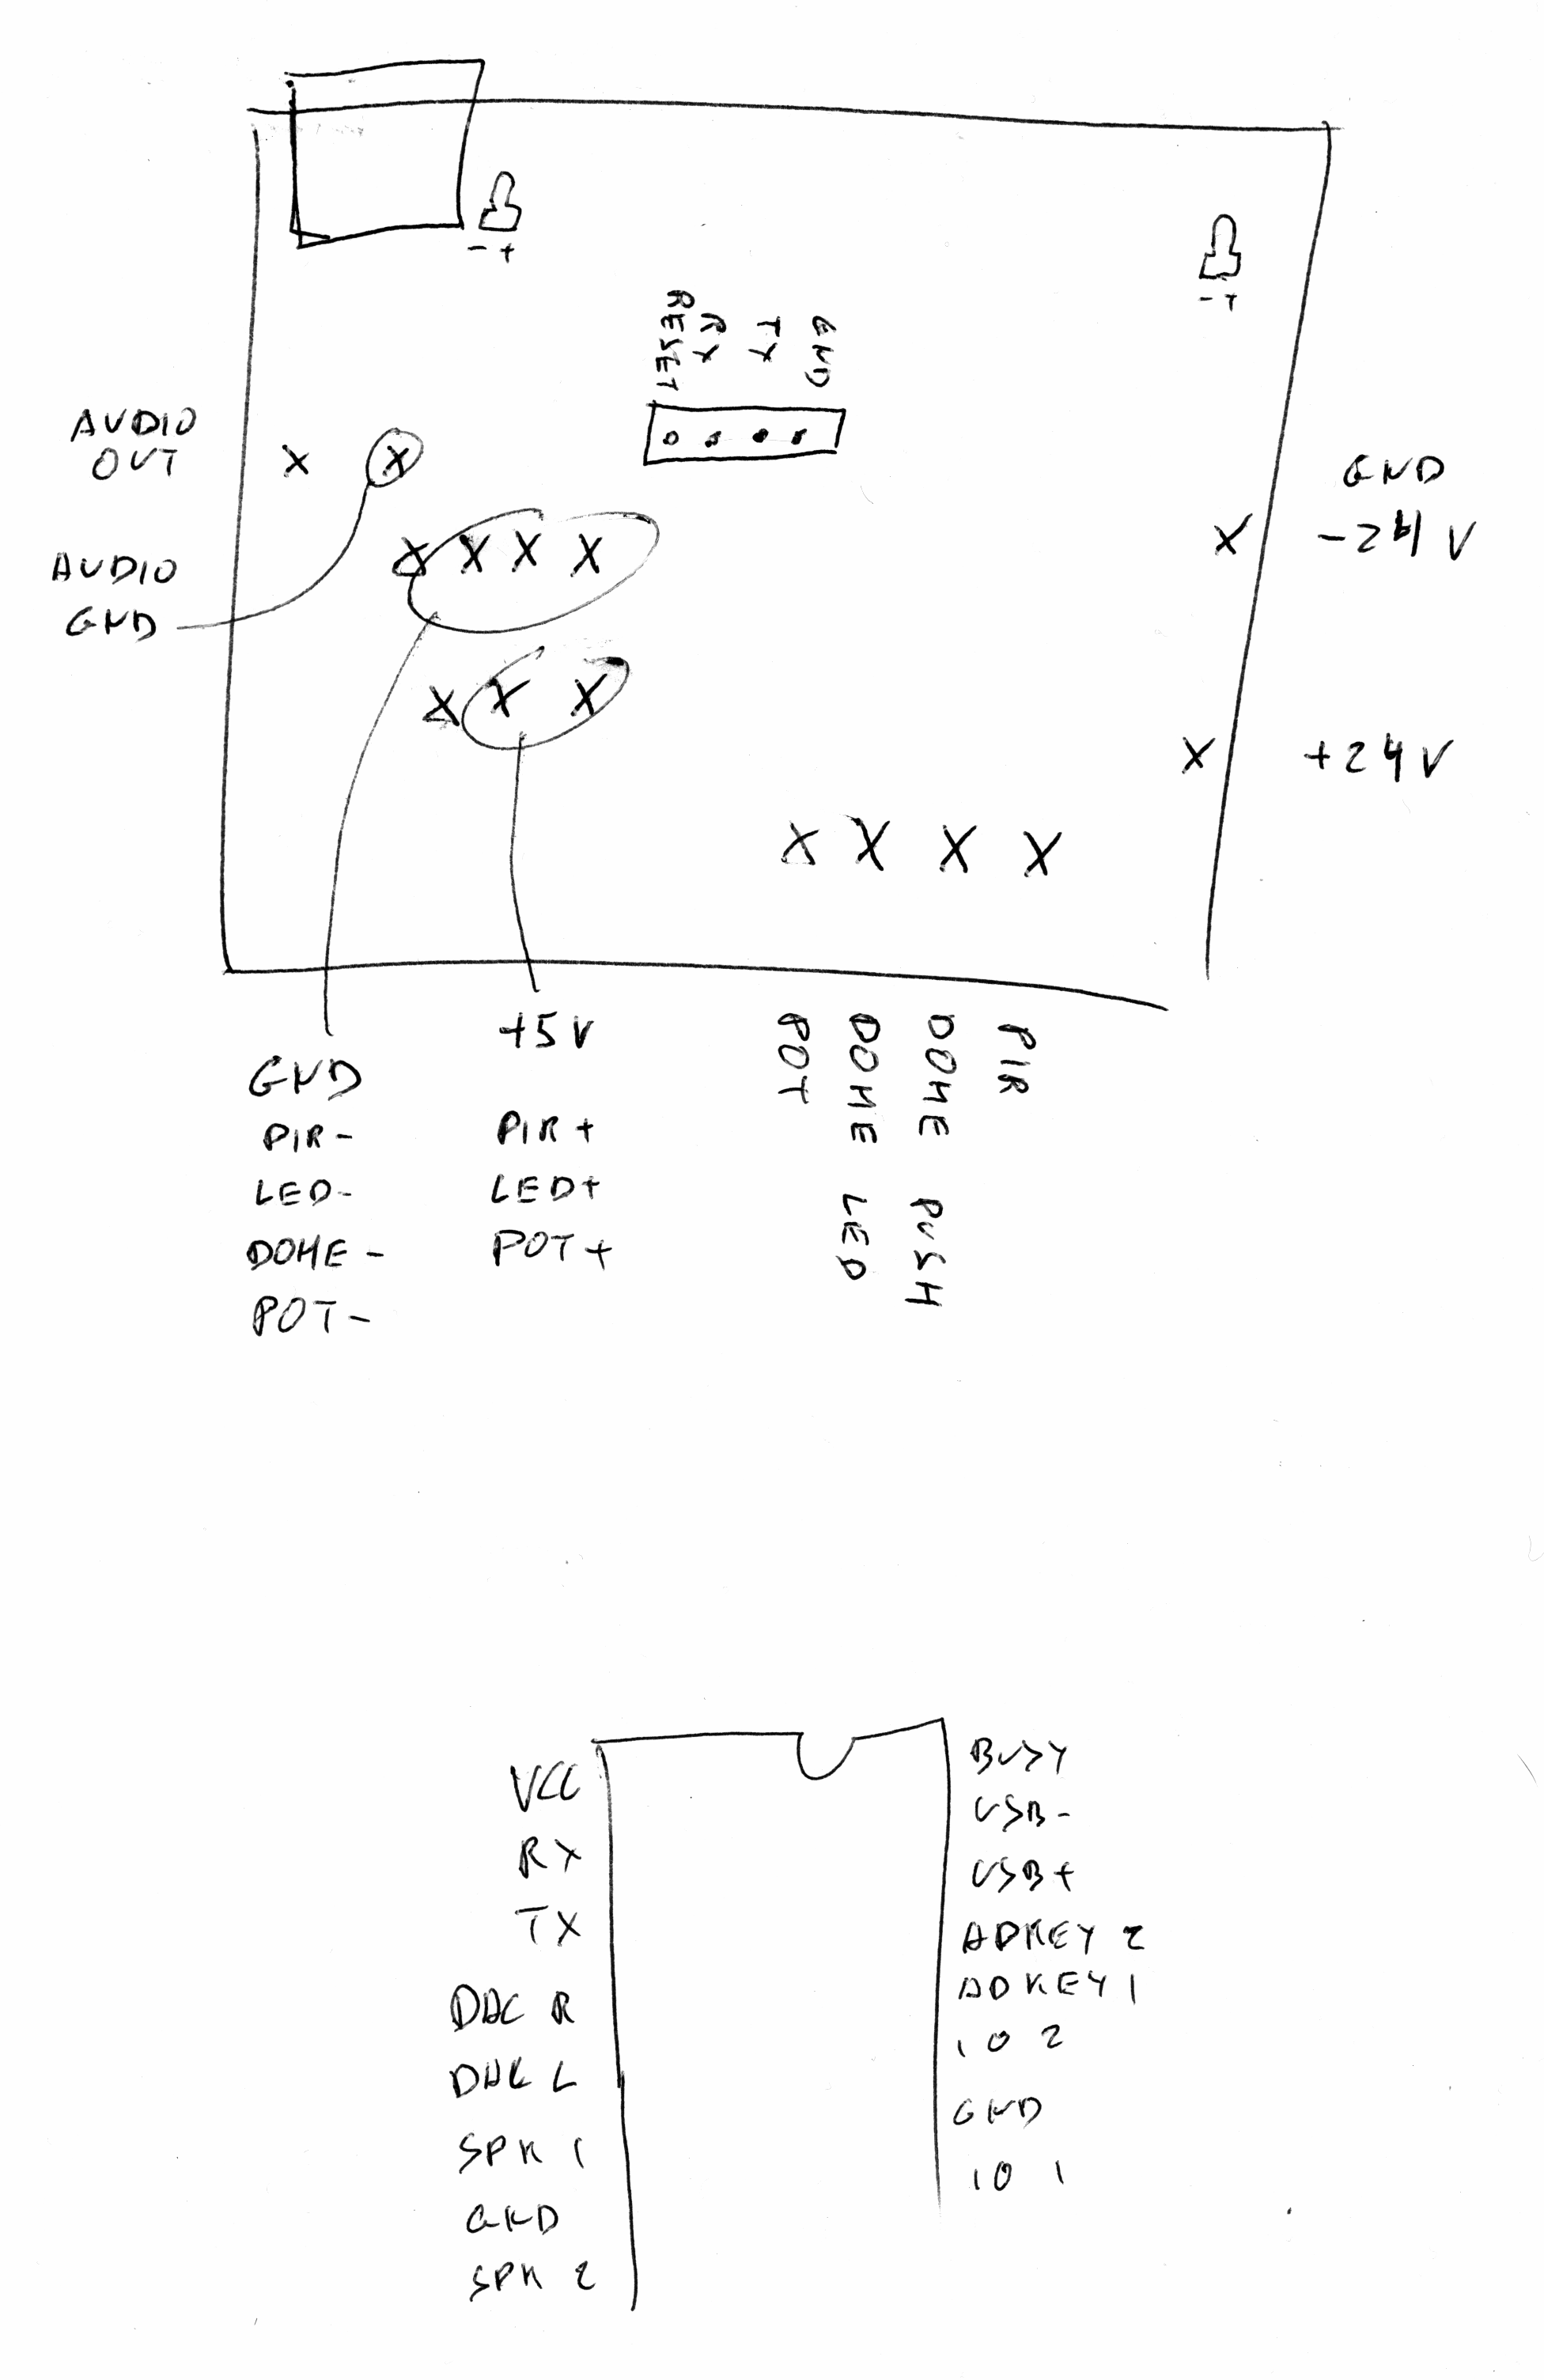 - +
- +
RESET
RX
TX
GND
AUDIO
OUT
X X
GND
-24V
X
AUDIO
GND
X X X X
X X X
X
+24V
X X X X
+5V
GND
PIR-
LED-
DOME-
POT-
PIR+
LED+
POT+
POT
DOME LED
DOME PUSH
PIR
VCC
RX
TX
DAC R
DAC L
SPK 1
GND
SPK 2
BUSY
USB-
USB+
ADKEY 2
ADKEY 1
IO 2
GND
IO 1